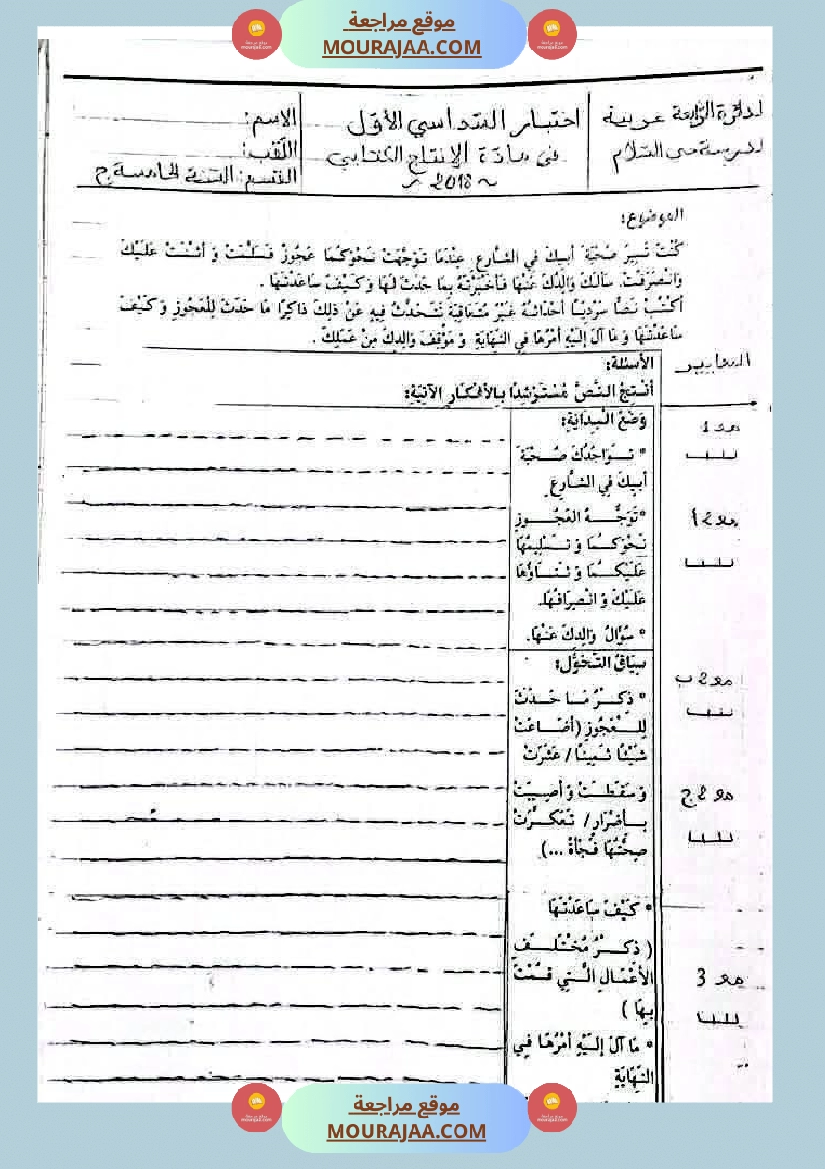 موقع مراجعة
MOURAJAA.COM
اختبار الثلاثي الأوّل
في مادّة الإنتاج الكتابي
~ 2018 ~
الاسم:
اللّقب:
القسم: السّنة الخامسة ج
الموضوع:
كُنْتَ تَسِيرُ صُحْبَةَ أَبِيكَ فِي الشَّارِعِ عِنْدَمَا تَوَجَّهَتْ نَحْوَكُمَا عَجُوزٌ فَسَلَّمَتْ وَ أَثْنَتْ عَلَيْكَ
وَانْصَرَفَتْ. سَأَلَكَ وَالِدُكَ عَنْهَا فَأَخْبَرْتَهُ بِمَا حَدَثَ لَهَا وَ كَيْفَ سَاعَدْتَهَا.
أُكْتُبْ نَصًّا سَرْدِيًّا أَحْدَاثُهُ غَيْرُ مُتَعَاقِبَةٍ تَتَحَدَّثُ فِيهِ عَنْ ذَلِكَ ذَاكِرًا مَا حَدَثَ لِلْعَجُوزِ وَ كَيْفَ
سَاعَدْتَهَا وَ مَا آلَ إِلَيْهِ أَمْرُهَا فِي النِّهَايَةِ وَ مَوْقِفَ وَالِدِكَ مِنْ عَمَلِكَ.
المعايير
الأسئلة:
أُنْتِجُ النَّصَّ مُسْتَرْشِدًا بِالأَفْكَارِ الآتِيَةِ:
وَضْعُ الْبِدَايَةِ:
مع 1
* تَوَاجُدُكَ صُحْبَةَ
أَبِيكَ فِي الشَّارِعِ
* تَوَجُّهُ الْعَجُوزِ
مع 2 أ
نَحْوَكُمَا وَ تَسْلِيمُهَا
عَلَيْكُمَا وَ ثَنَاؤُهَا
عَلَيْكَ وَ انْصِرَافُهَا.
* سُؤَالُ وَالِدِكَ عَنْهَا.
سِيَاقُ التَّحَوُّلِ:
مع 2 ب
* ذِكْرُ مَا حَدَثَ
لِلْعَجُوزِ (أَضَاعَتْ
شَيْئًا ثَمِينًا / عَثَرَتْ
وَ سَقَطَتْ وَ أُصِيبَتْ
مع 2 ج
بِأَضْرَارٍ / تَعَكَّرَتْ
صِحَّتُهَا فَجْأَةً ...)
* كَيْفَ سَاعَدْتَهَا
( ذِكْرُ مُخْتَلَفِ
الأَعْمَالِ الَّتِي قُمْتَ
مع 3
بِهَا )
* مَا آلَ إِلَيْهِ أَمْرُهَا فِي
النِّهَايَةِ
موقع مراجعة
MOURAJAA.COM